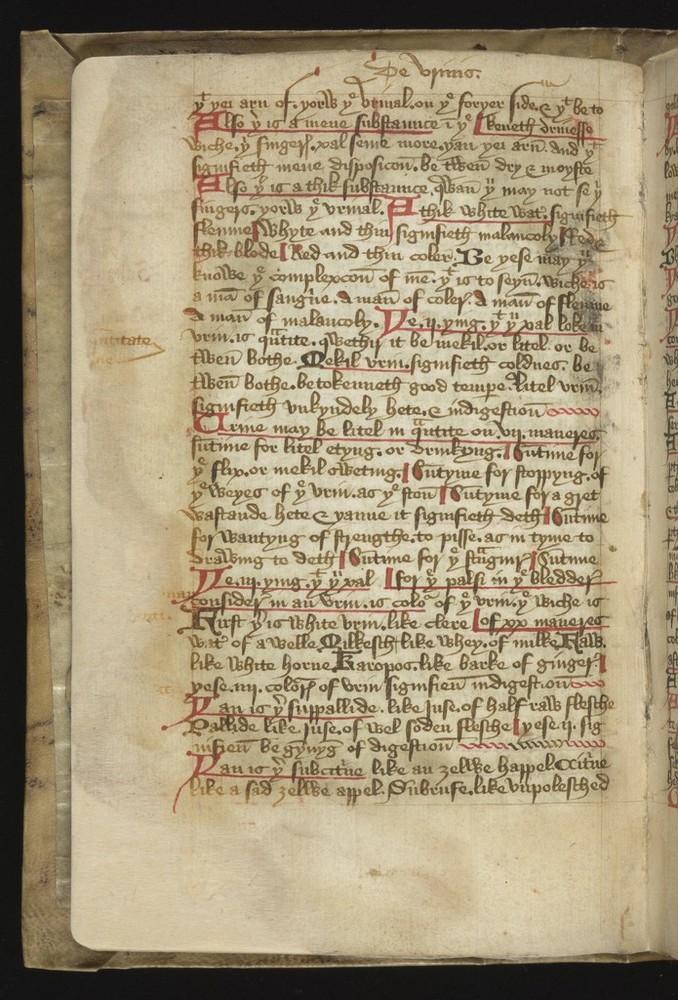 De Vrinis.
yt yei arn of. yorw ye vrinal. on ye foryer side. & yt be to
Also yr is a mene substaunce i ye
wiche. ye fingerꝭ. xal seme more. yan yei arn. and yt
signifieth mene disposicon. be twen dry & moyste
Also yr is a thik substaunce. qwan yu may not se yi
fingers. yorw ye vrinal. A thik white wat'. signifieth
flenme whyte and thin signifieth malancoly Rede
thik blode Red and thin coler. Be yese may yu
knowe ye complexcon of me. yt is to seyn. wiche is
a man of sangue. a man of coler. a man of flenme
a man of malancoly. Ye .ij. ying. yt yu xal loke in
vrin. is quantite. qwethir it be mekil. or litel. or be
quantitate
twen bothe. Mekil vrin. signifieth coldnes. be
twen bothe. betokenneth good tempe. Litel vrin.
signifieth vnkyndely hete. & indigestion
Urine may be litel in quntite on .vij. maneres.
sutime for litel etyng. or drinkyng. Sutime for
ye flix. or mekil swetnig. Sutyme for stoppyng. of
ye weyes of ye vrin. as ye ston Sutyme for a gret
wastande hete & yanne it signifieth deth Sutime
for wantyng of strengthe. to pisse. as in tyme to
drawing to deth Sutime for ye Sutime
Ye .iij. ying. yt yu xal for ye palsi in ye bledder
consider in an vrin. is color of ye vrin. ye wiche is
First yr is white vrin. like clere of xx maneres
wat' of a welle Milkesch like whey. of milke Raw.
like white horne Karopos. like barke of ginger
yese .iiij. colorꝭ of vrin signifien indigestion
Yan is yr suppallide. like iuse. of half raw flesche
Pallide like iuse. of wel soden flesche yese .ij. sig
nifien begynyg of digestion
Yan is yr subcitrine like an zelwe happel. Citrine
like a sad zelwe appel. Subrufe. like vnpolesched